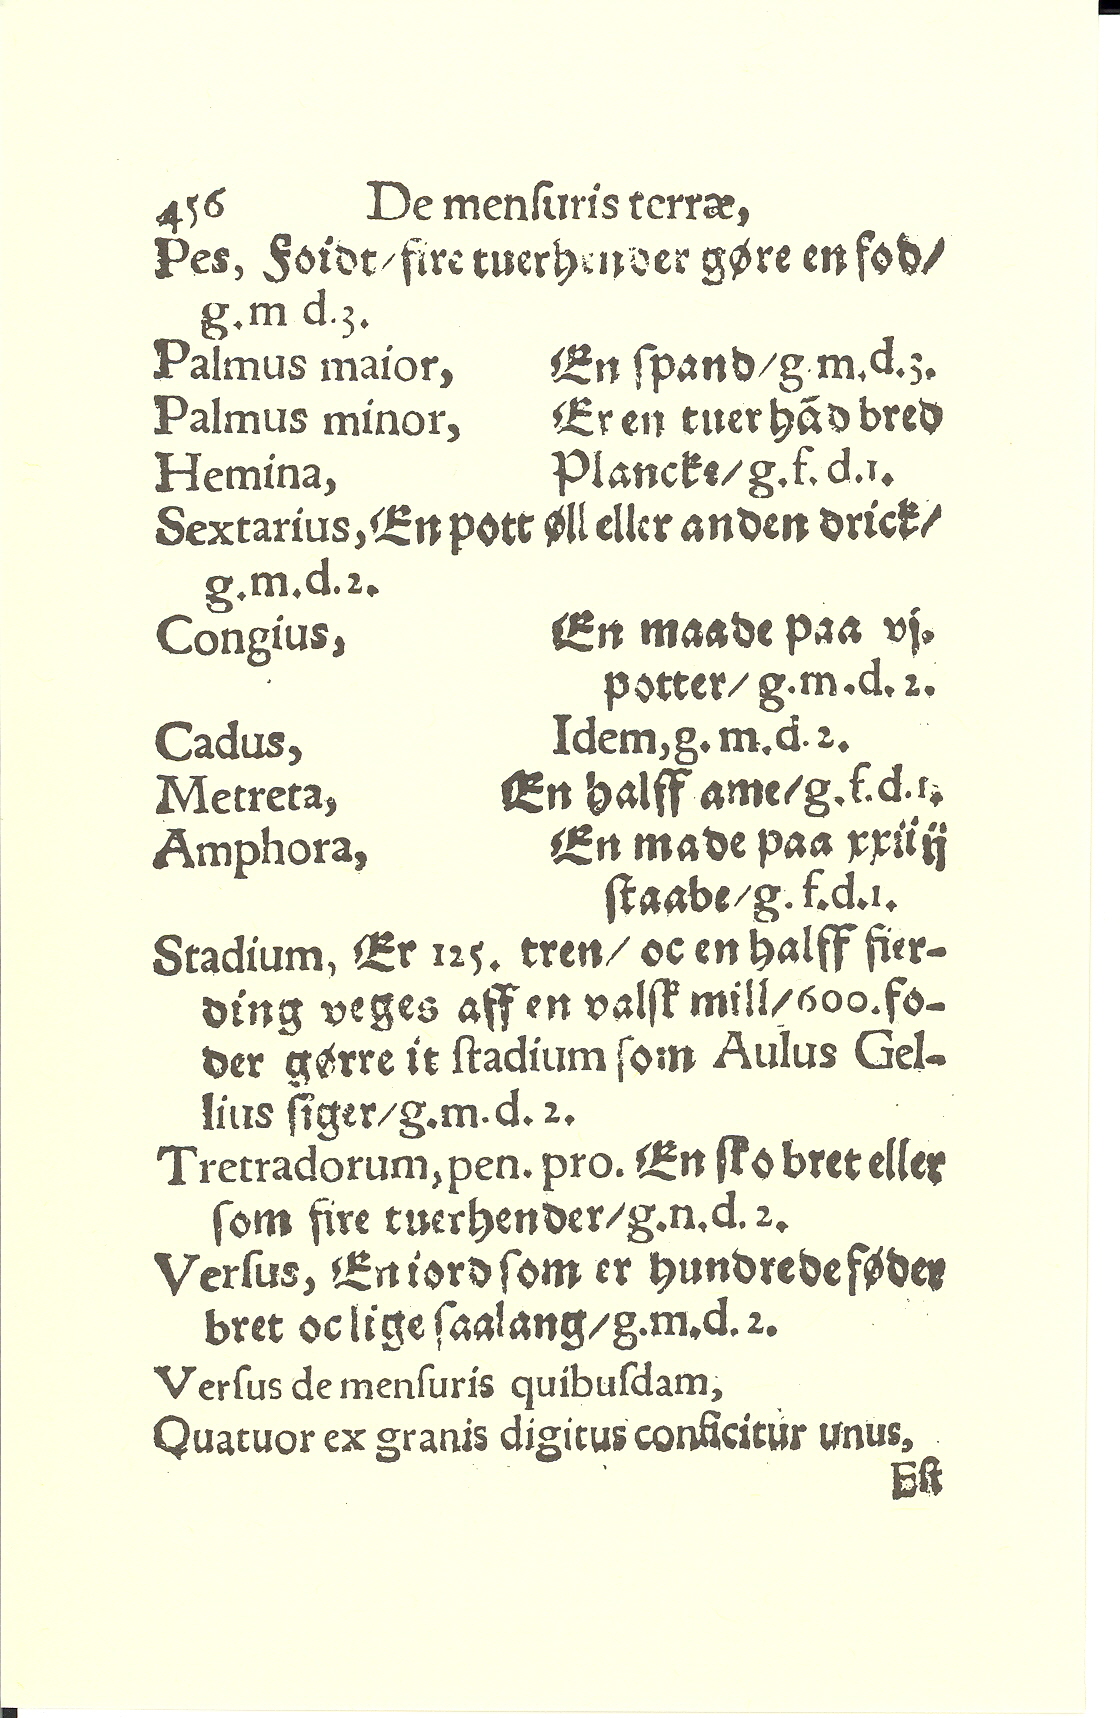 456 De menſuris terræ,
Pes, Foidt/fire tuerhender gøre en fod/
g.m d.3.
Palmus maior, En ſpand/g.m.d.3.
Palmus minor, Er en tuer hãd bred
Hemina, Plancke/g.f.d.1.
Sextarius, En pott øll eller anden drick/
g.m.d.2.
Congius, En maade paa vj.
potter/g.m.d.2.
Cadus, Idem,g.m.d.2.
Metreta, En halff ame/g.f.d.1.
Amphora, En made paa xxiiij
ſtaabe/g.f.d.1.
Stadium, Er 125. tren/ oc en halff fier-
ding veges aff en valſk mill/600.fo-
der gørre it ſtadium ſom Aulus Gel-
lius ſiger/g.m.d.2.
Tretradorum,pen.pro. En ſko bret eller
ſom fire tuerhender/g.n.d.2.
Verſus, En iord ſom er hundrede føder
bret oc lige ſaalang/g.m.d.2.
Verſus de menſuris quibuſdam,
Quatuor ex granis digitus conficitur unus,
Eſt